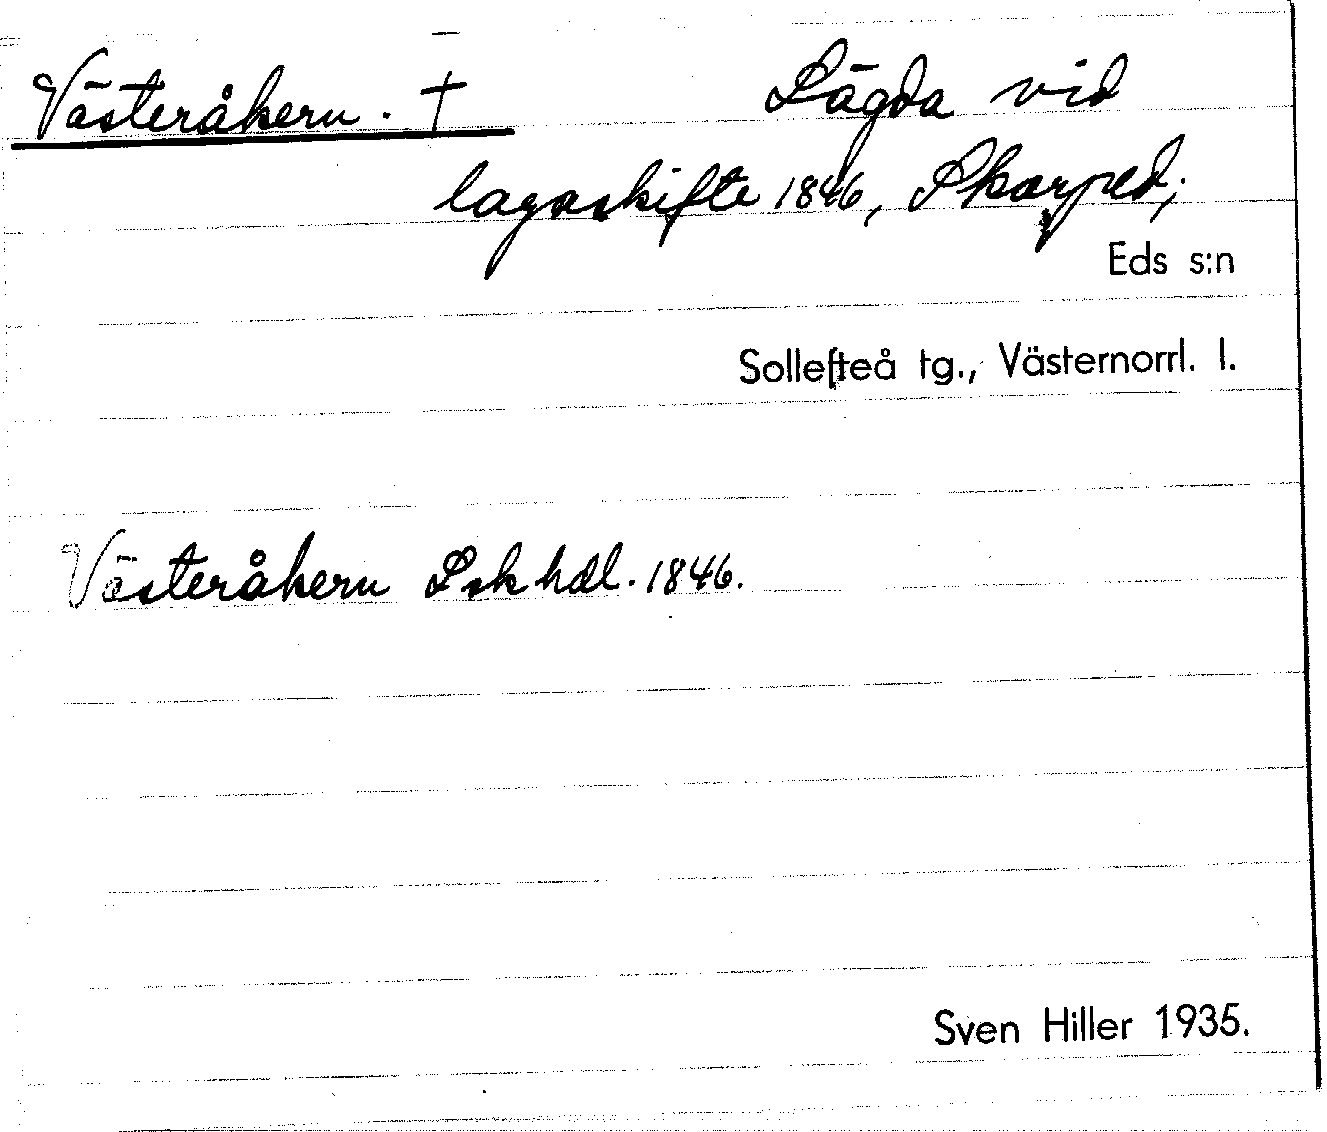 Västeråkern. † Lägda vid
lagaskifte 1846, Skorped;
Eds s:n
Sollefteå tg., Västernorrl. l.
Västeråkern Lskhdl. 1846.
Sven Hiller 1935.